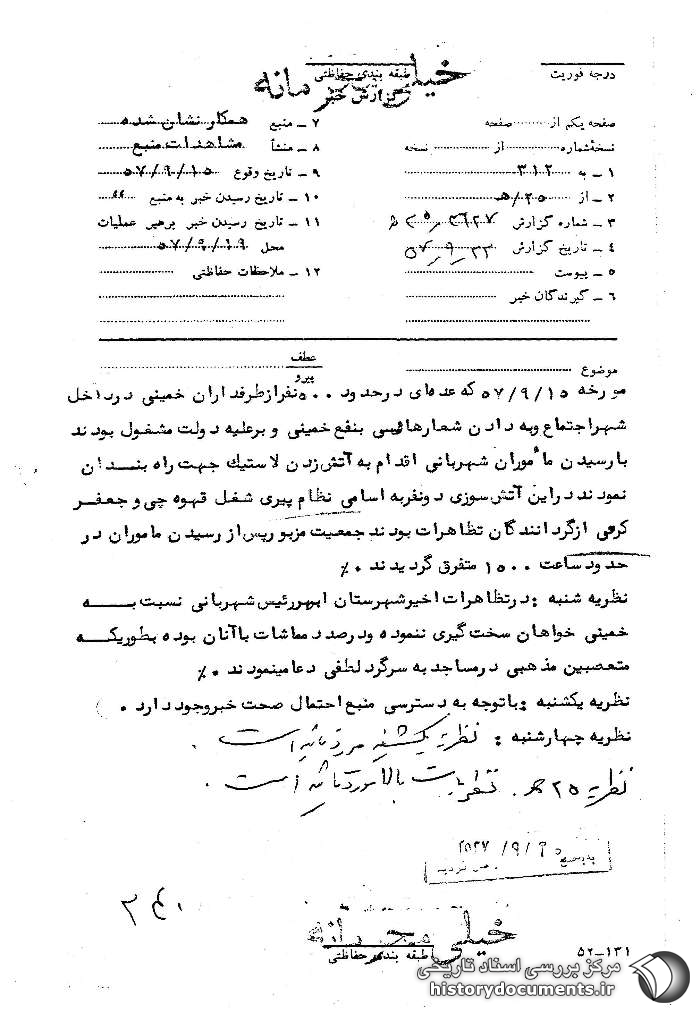 خیلی محرمانه
طبقه بندی حفاظتی
درجه فوریت
گزارش خبر
صفحه یکم از صفحه
نسخه شماره از نسخه
۱ – به ۳۱۲
۲ – از ۲۵/ه‍
۳ – شماره گزارش
۴ – تاریخ گزارش ۵۷_۹_۲۲
۵ – پیوست
۶ – گیرندگان خبر
۷ – منبع همکار نشان شده
۸ – منشأ مشاهدات منبع
۹ – تاریخ وقوع ۵۷/۹/۱۵
۱۰ – تاریخ رسیدن خبر به منبع "
۱۱ – تاریخ رسیدن خبر برهبر عملیات
محل ۵۷/۹/۱۹
۱۲ – ملاحظات حفاظتی
موضوع
عطف
پیرو
مورخه ۵۷/۹/۱۵ که عده‌ای در حدود ۵۰۰ نفر از طرفداران خمینی در داخل
شهر اجتماع و به دادن شعارهائی بنفع خمینی و برعلیه دولت مشغول بودند
با رسیدن مأموران شهربانی اقدام به آتش زدن لاستیک جهت راه بندان
نمودند در این آتش سوزی دونفر به اسامی نظام پیری شغل قهوه چی و جعفر
کرمی از گردانندگان تظاهرات بودند جمعیت مزبور پس از رسیدن ماموران در
حدود ساعت ۱۵۰۰ متفرق گردیدند ۰٪
نظریه شنبه : در تظاهرات اخیر شهرستان ابهر رئیس شهربانی نسبت به
خمینی خواهان سخت گیری ننموده و درصدد مماشات با آنان بوده بطوریکه
متعصبین مذهبی در مساجد به سرگرد لطفی دعا مینمودند ۰٪
نظریه یکشنبه : با توجه به دسترسی منبع احتمال صحت خبر وجود دارد ۰
نظریه چهارشنبه : نظریه یکشنبه مورد تائید است .
نظریه ۲۵ ه‍ . نظریات بالا مورد تائید است .
خیلی محرمانه
طبقه بندی حفاظتی
۵۲–۱۳۱
مرکز بررسی اسناد تاریخی
historydocuments.ir